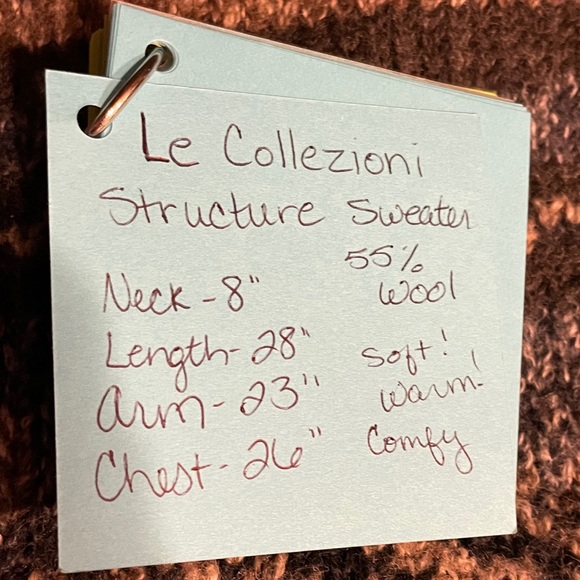 Le Collezioni
Structure Sweater
55%
Wool
Neck - 8"
Length - 28"
Soft!
Arm - 23"
Warm!
Chest - 26"
Comfy